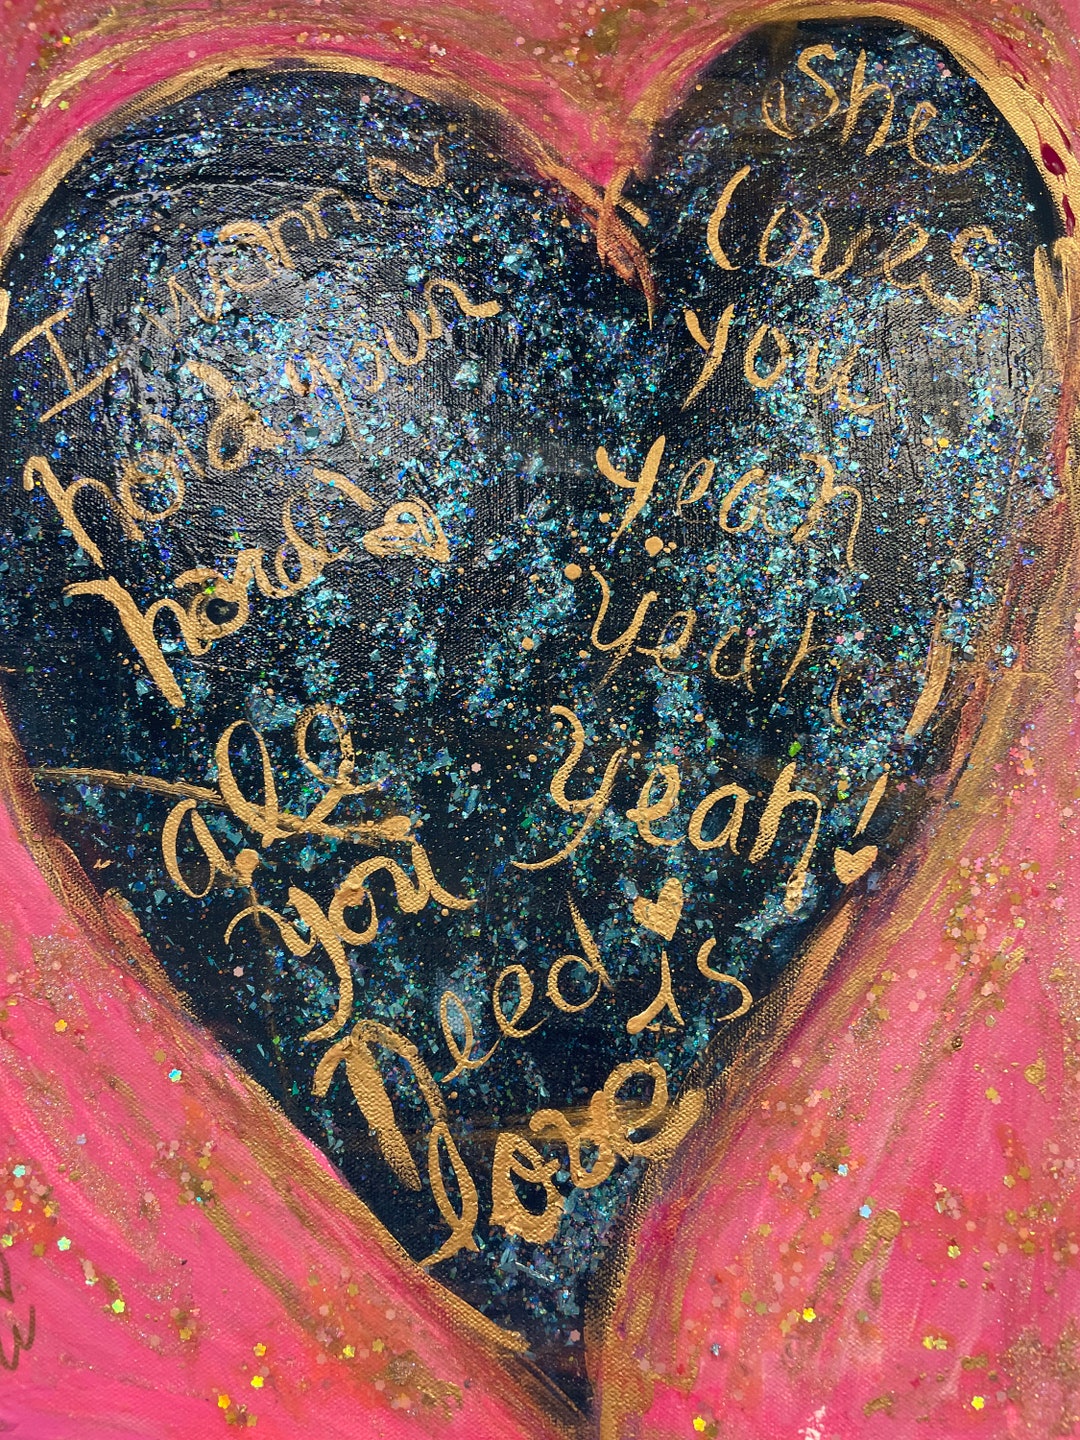 I wanna
hold your
hand
She
loves
you
yeah
yeah
yeah!
all
you
need is
love